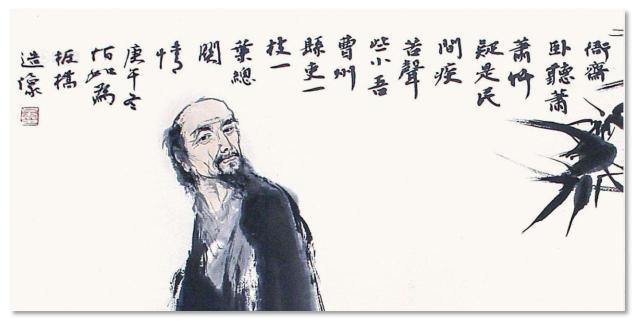 衙齋
卧聽蕭
蕭竹
疑是民
間疾
苦聲
些小吾
曹州
縣吏一
枝一
葉總
關
情
庚午冬
如爲
板橋
造像